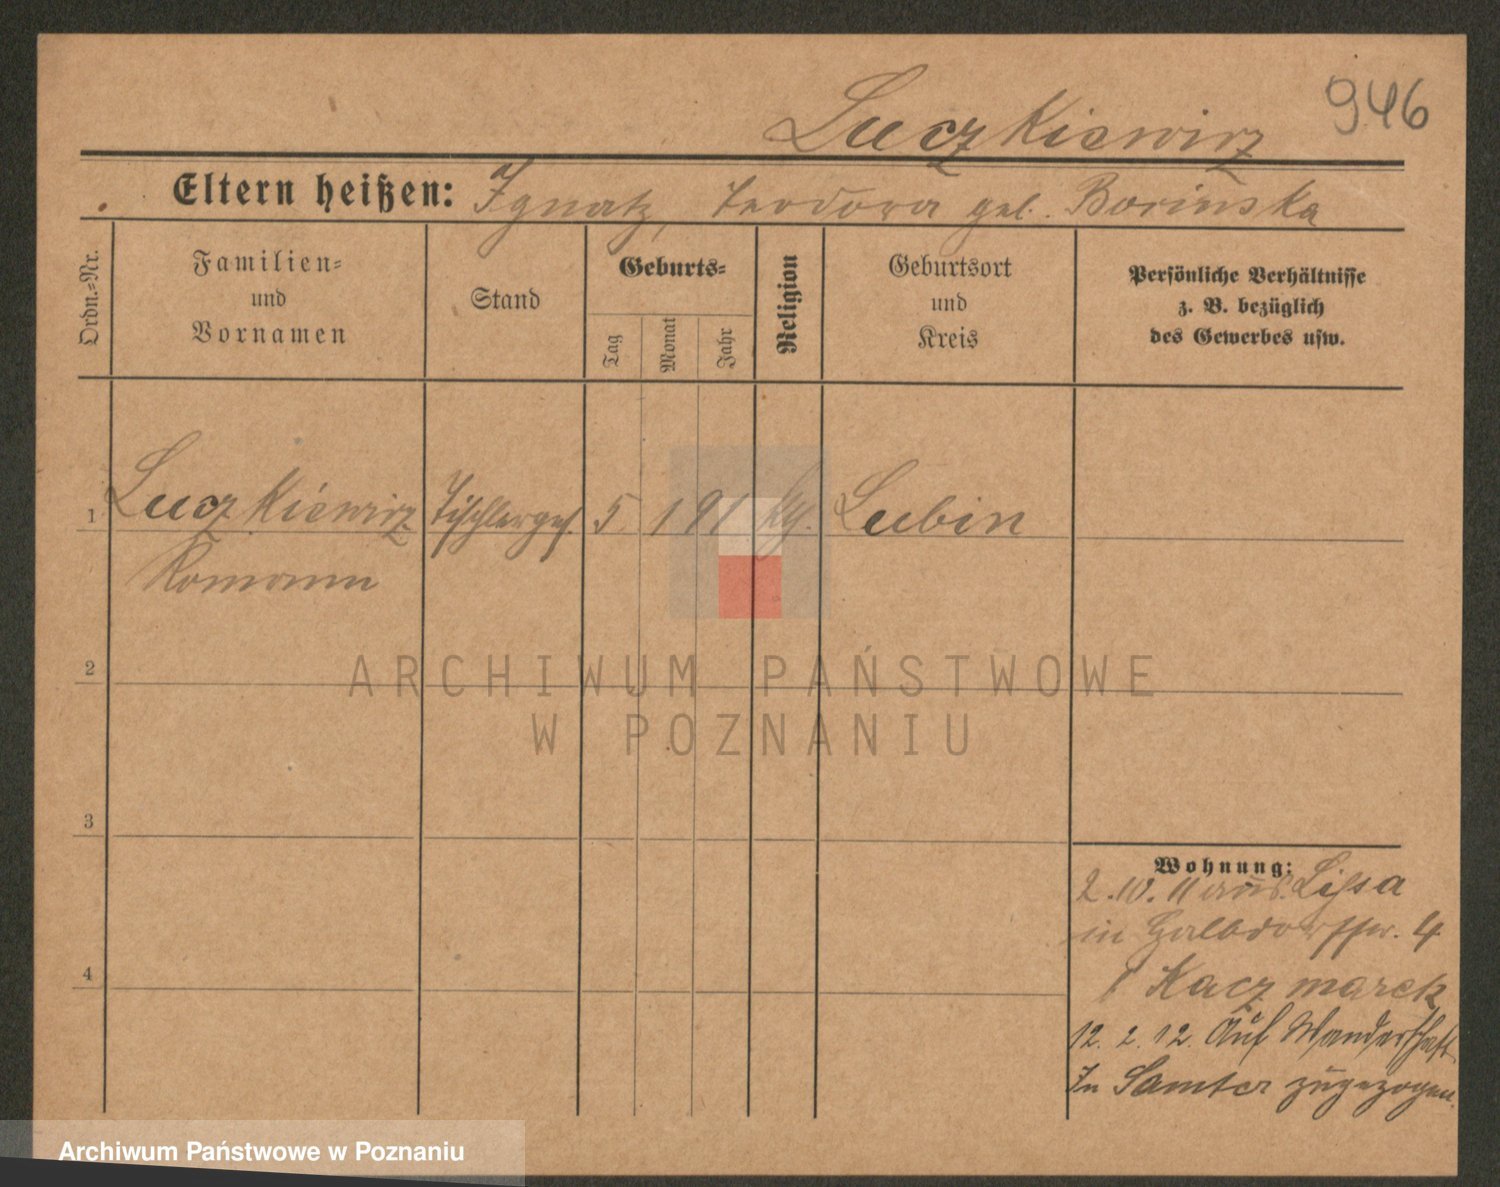 946
Luczkiewicz
Eltern heißen: Ignatz, Teodora geb. Borinska
Ordn.=Nr.
Familien=
und
Vornamen
Stand
Geburts=
Tag
Monat
Jahr
Religion
Geburtsort
und
Kreis
Persönliche Verhältnisse
z. B. bezüglich
des Gewerbes usw.
1 Luczkiewicz Tischlerges. 5. 1 91 Lubin
Roman
2
ARCHIWUM PAŃSTWOWE
W POZNANIU
3
4
Wohnung:
2.10.11 aus Lissa
in 4
Kaczmarek
12. 2. 12. Auf Wanderschaft
In Samter zugezogen.
Archiwum Państwowe w Poznaniu